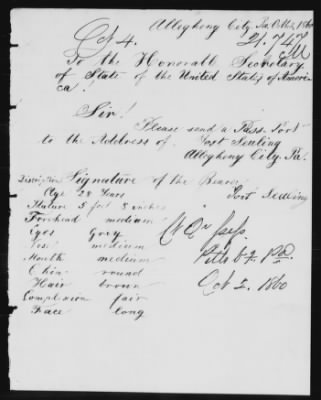 Alleghony City Pa. Oct 2, 1860
Oct 4. 21.747
To the Honorabl Secretary
of State of the United States of America
ca!
Sir!
Please send a Pass-Port
to the Address of
Alleghony City Pa.
Discription Signature of the Bearer
Age 28 Years
Stature 5 feet 8 inches
Forehead medium
Eyes Grey
Nose medium
Mouth medium
Pittsbg Pa
Chin round
Oct 2. 1860
Hair brown
Complexion fair
Face long